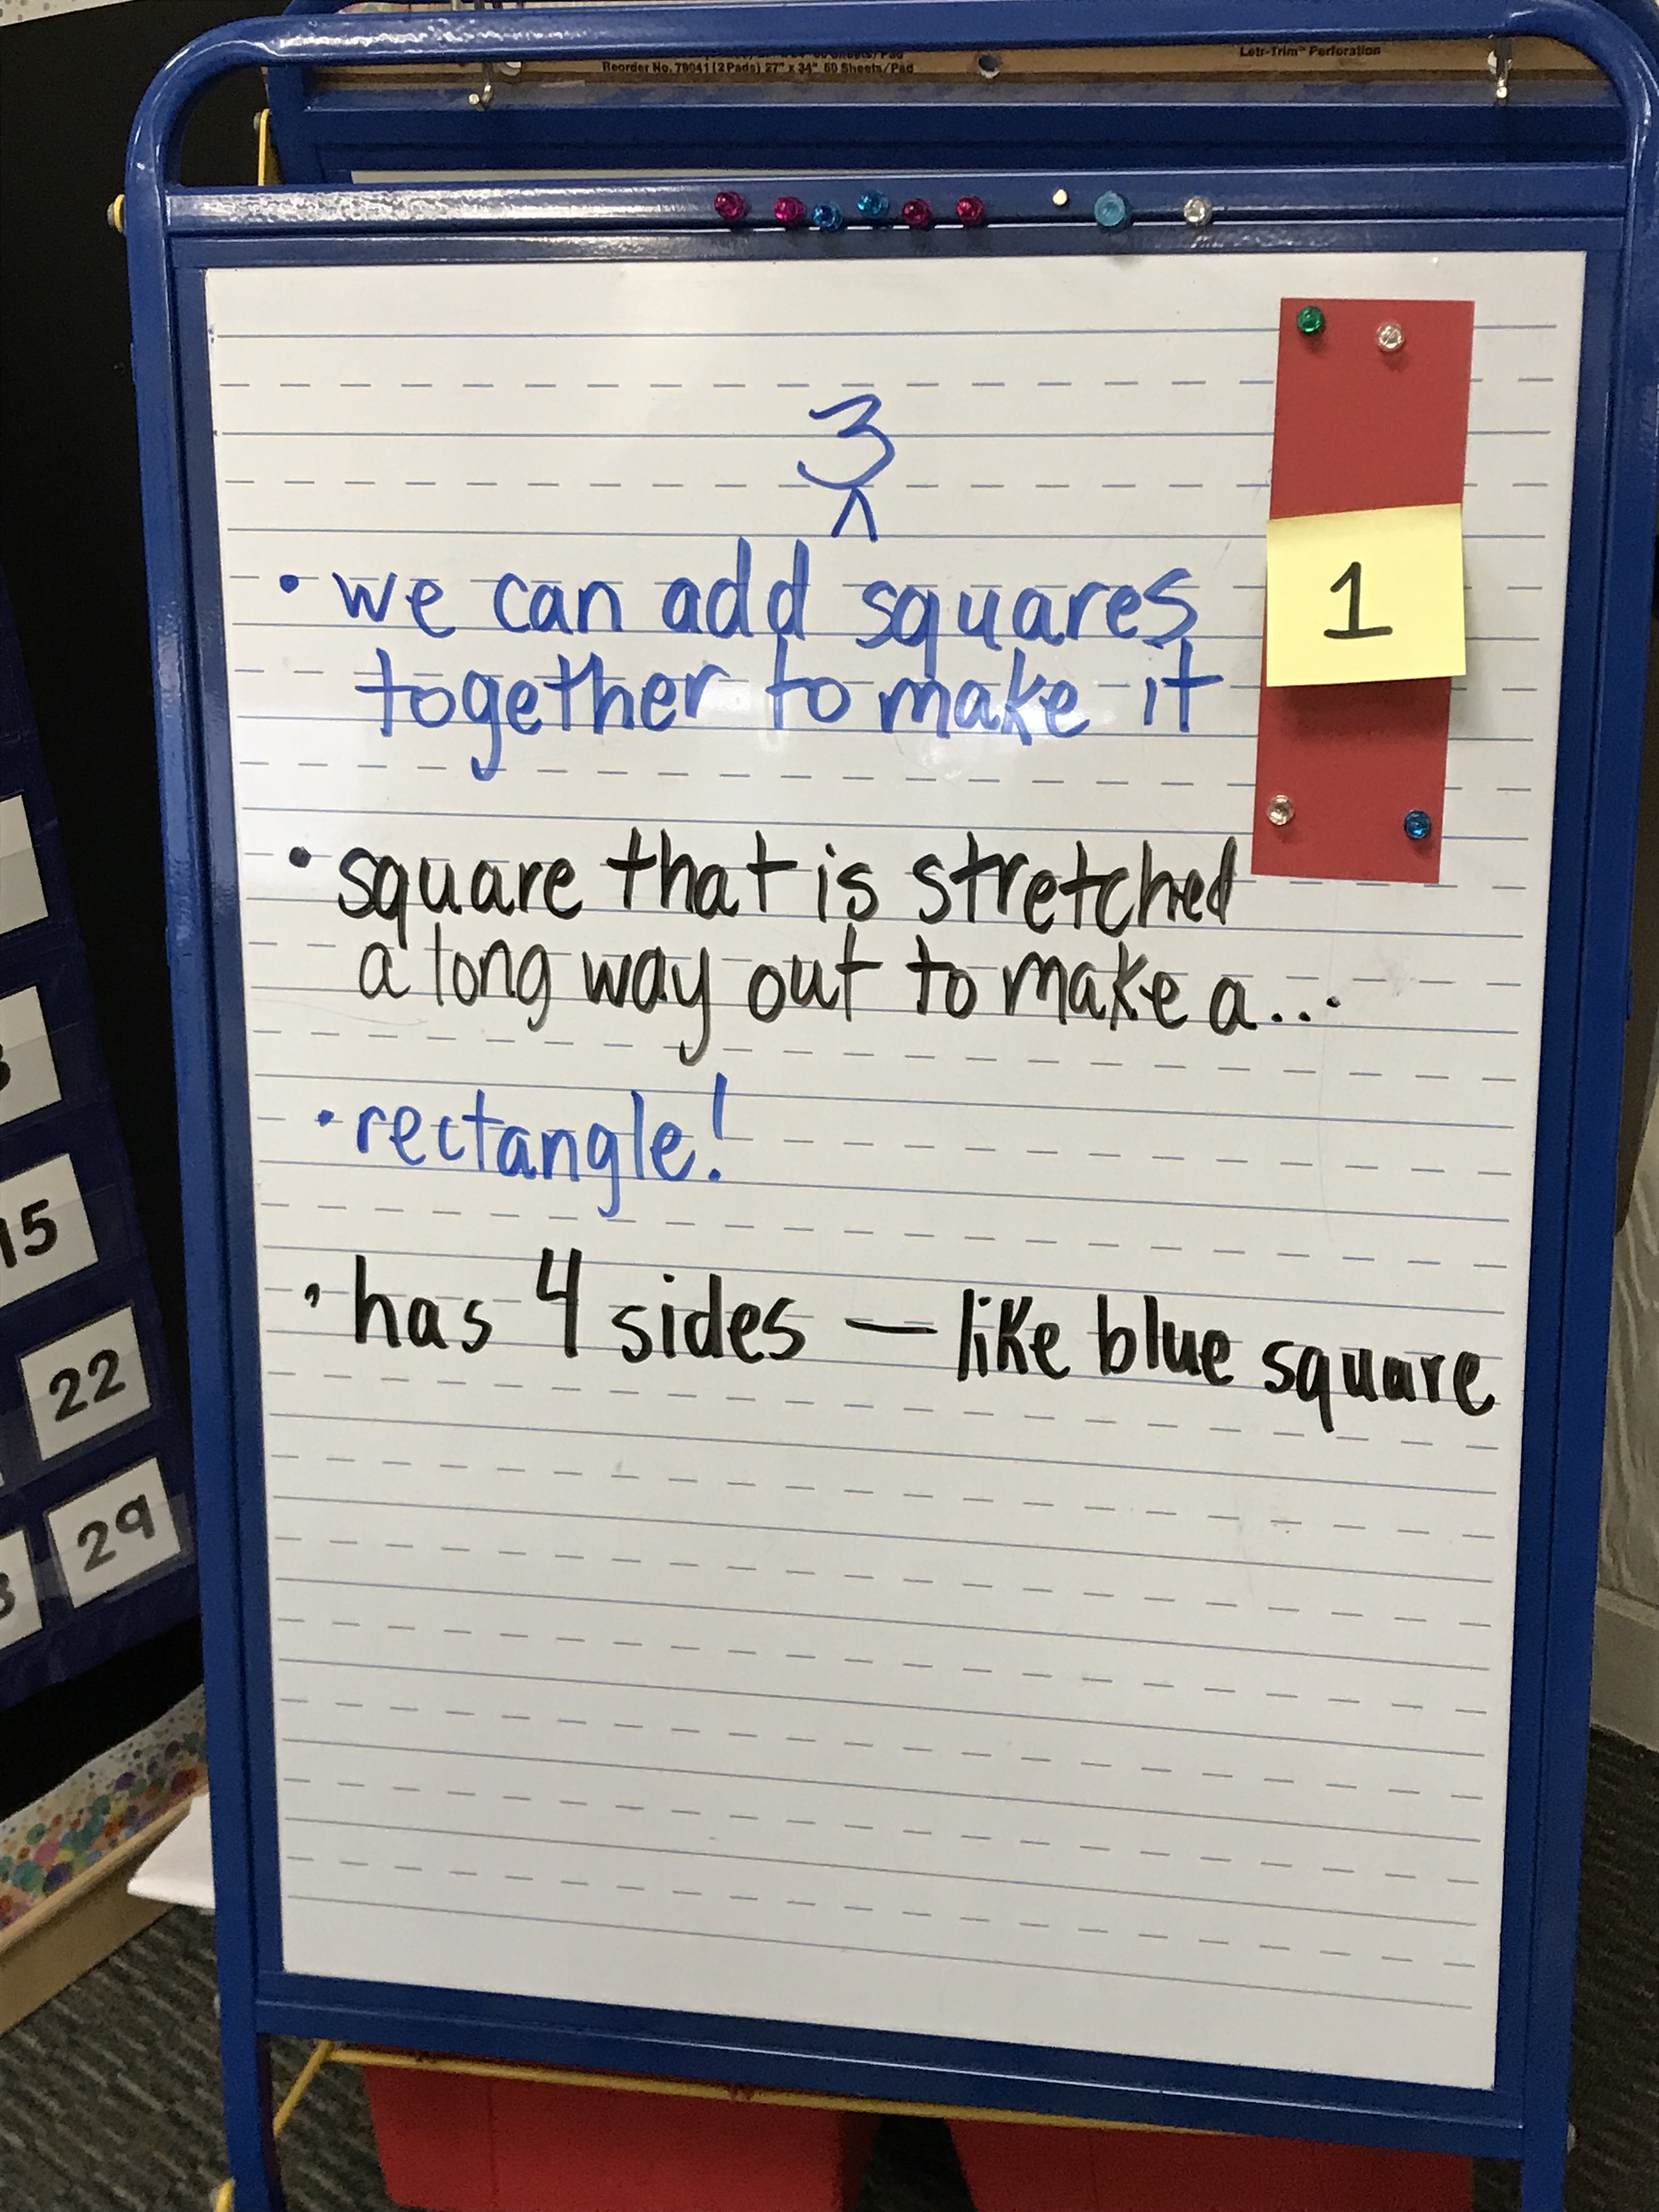 Reorder No. 79041 (2 Pads) 27" x 34" 50 Sheets/Pad
Letr-Trim™ Perforation
3
^
• we can add squares
together to make it
1
• square that is stretched
a long way out to make a...
• rectangle!
• has 4 sides — like blue square
15
22
29